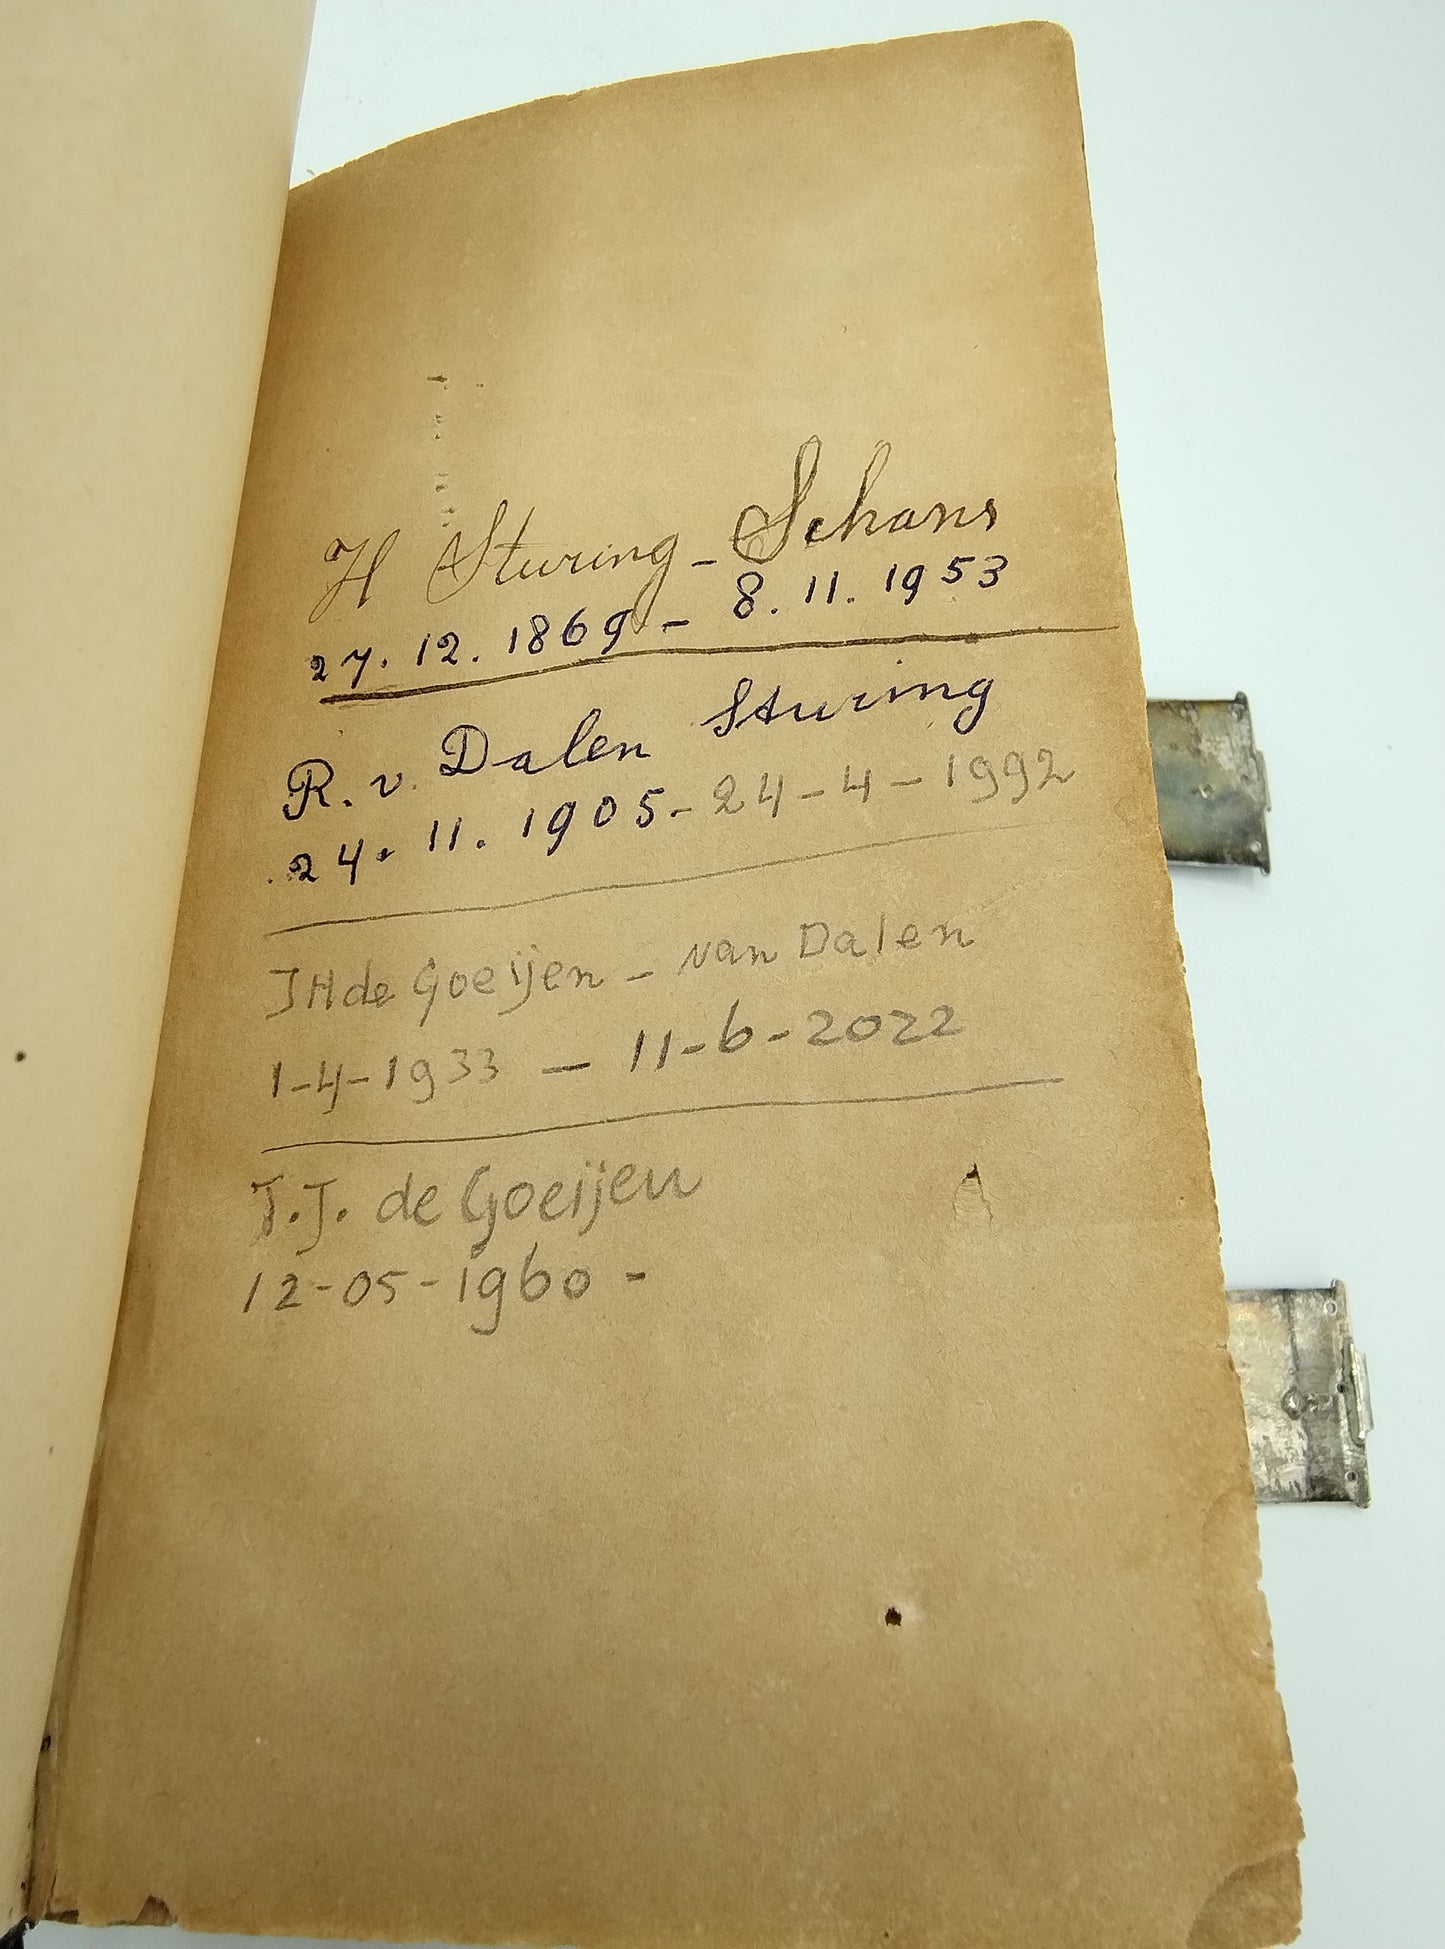 H Sturing - Schans
27. 12. 1869 - 8. 11. 1953
R. v. Dalen Sturing
24. 11. 1905 - 24 - 4 - 1992
JH de Goeijen - van Dalen
1-4-1933 - 11-6-2022
T.J. de Goeijen
12-05-1960 -